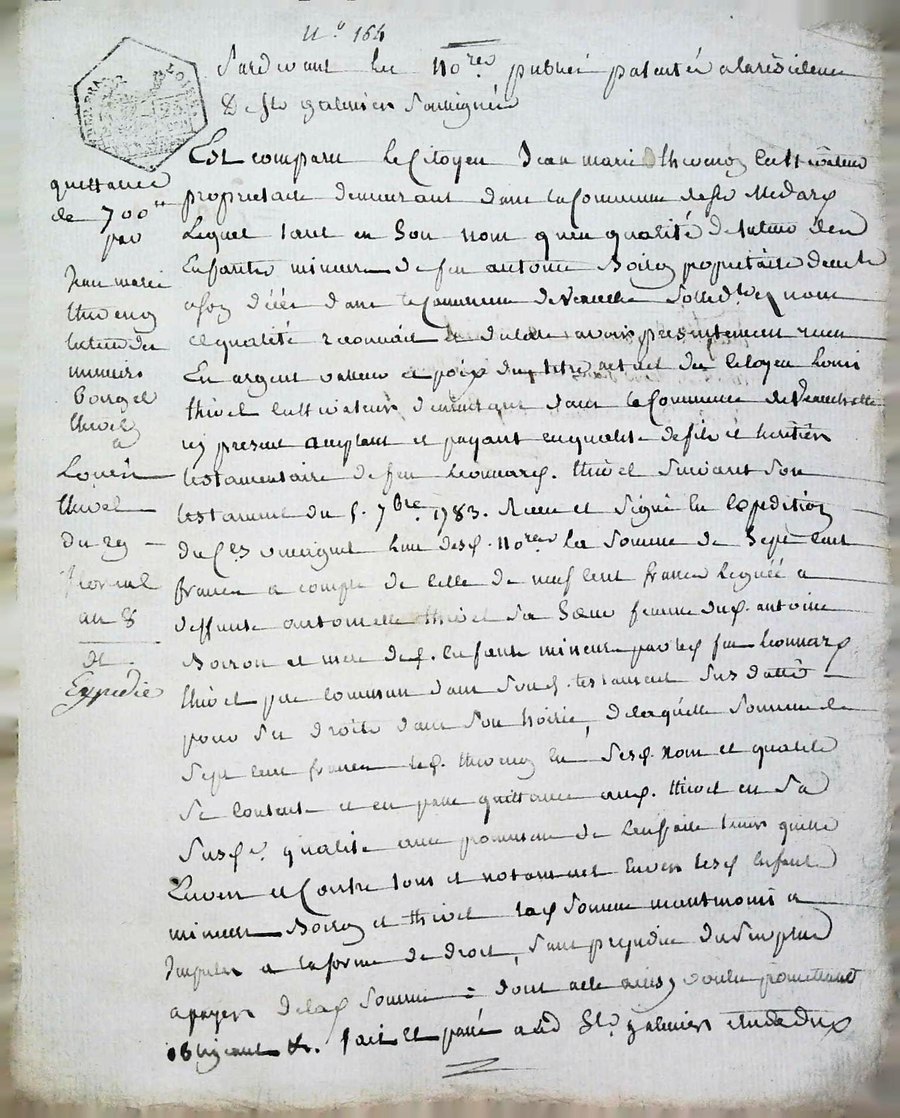 N.° 164
Pardevant les no.res publics patentés a la residence
De St. galmier Soussignés
Est comparu le Citoyen Jean marie thivend Cultivateur
proprietaire demeurant dans la Commune de St. Medard
Lequel tant en Son nom qu'en qualité de tuteur des
Enfants mineurs de feu antoine Boiron proprietaire
décédé dans la Commune de Veauche
et qualité reconnait et déclare avoir présentement recu
En argent valleur et poix du titre actuel du Citoyen Louis
thivel Cultivateur demeurant dans la Commune de Veauchette
icy present acceptant et payant en qualité de fils et heritier
testamentaire de feu Leonnard. thivel Suivant Son
testament du 5. 7bre 1783. Recu et Signé En Expedition
l'un desd. no.res la Somme de Sept Cent
francs a compte de Celle de neuf Cent francs leguée a
deffunte antoinette thivel Sa Sœur femme dud. antoine
Boiron et mere desd. Enfants mineurs par led. feu Leonnard
thivel pere commun dans Sond. testament Sus datté
pour Ses droits dans Son hoirie, de laquelle Somme de
Sept Cent francs led. thivend En Sesd. nom et qualité
Se Contente et en passe quittance aud. thivel en Sa
Susd.e qualité avec promesse de L'en faire tenir quitte
Envers et Contre tous et notamment Envers lesd. Enfants
mineurs Boiron et thivel lad. Somme
Imputer a la forme de droit, Sans prejudice du Surplus
a payer de lad. Somme = dont acte ainsy voulu promettant
obligeant &. fait Et passé aud. St. galmier Etude
quittance
de 700tt
par
Jean marie
thivend
tuteur des
mineurs
thivel
a
Louis
thivel
du 29
an 8
Expedié